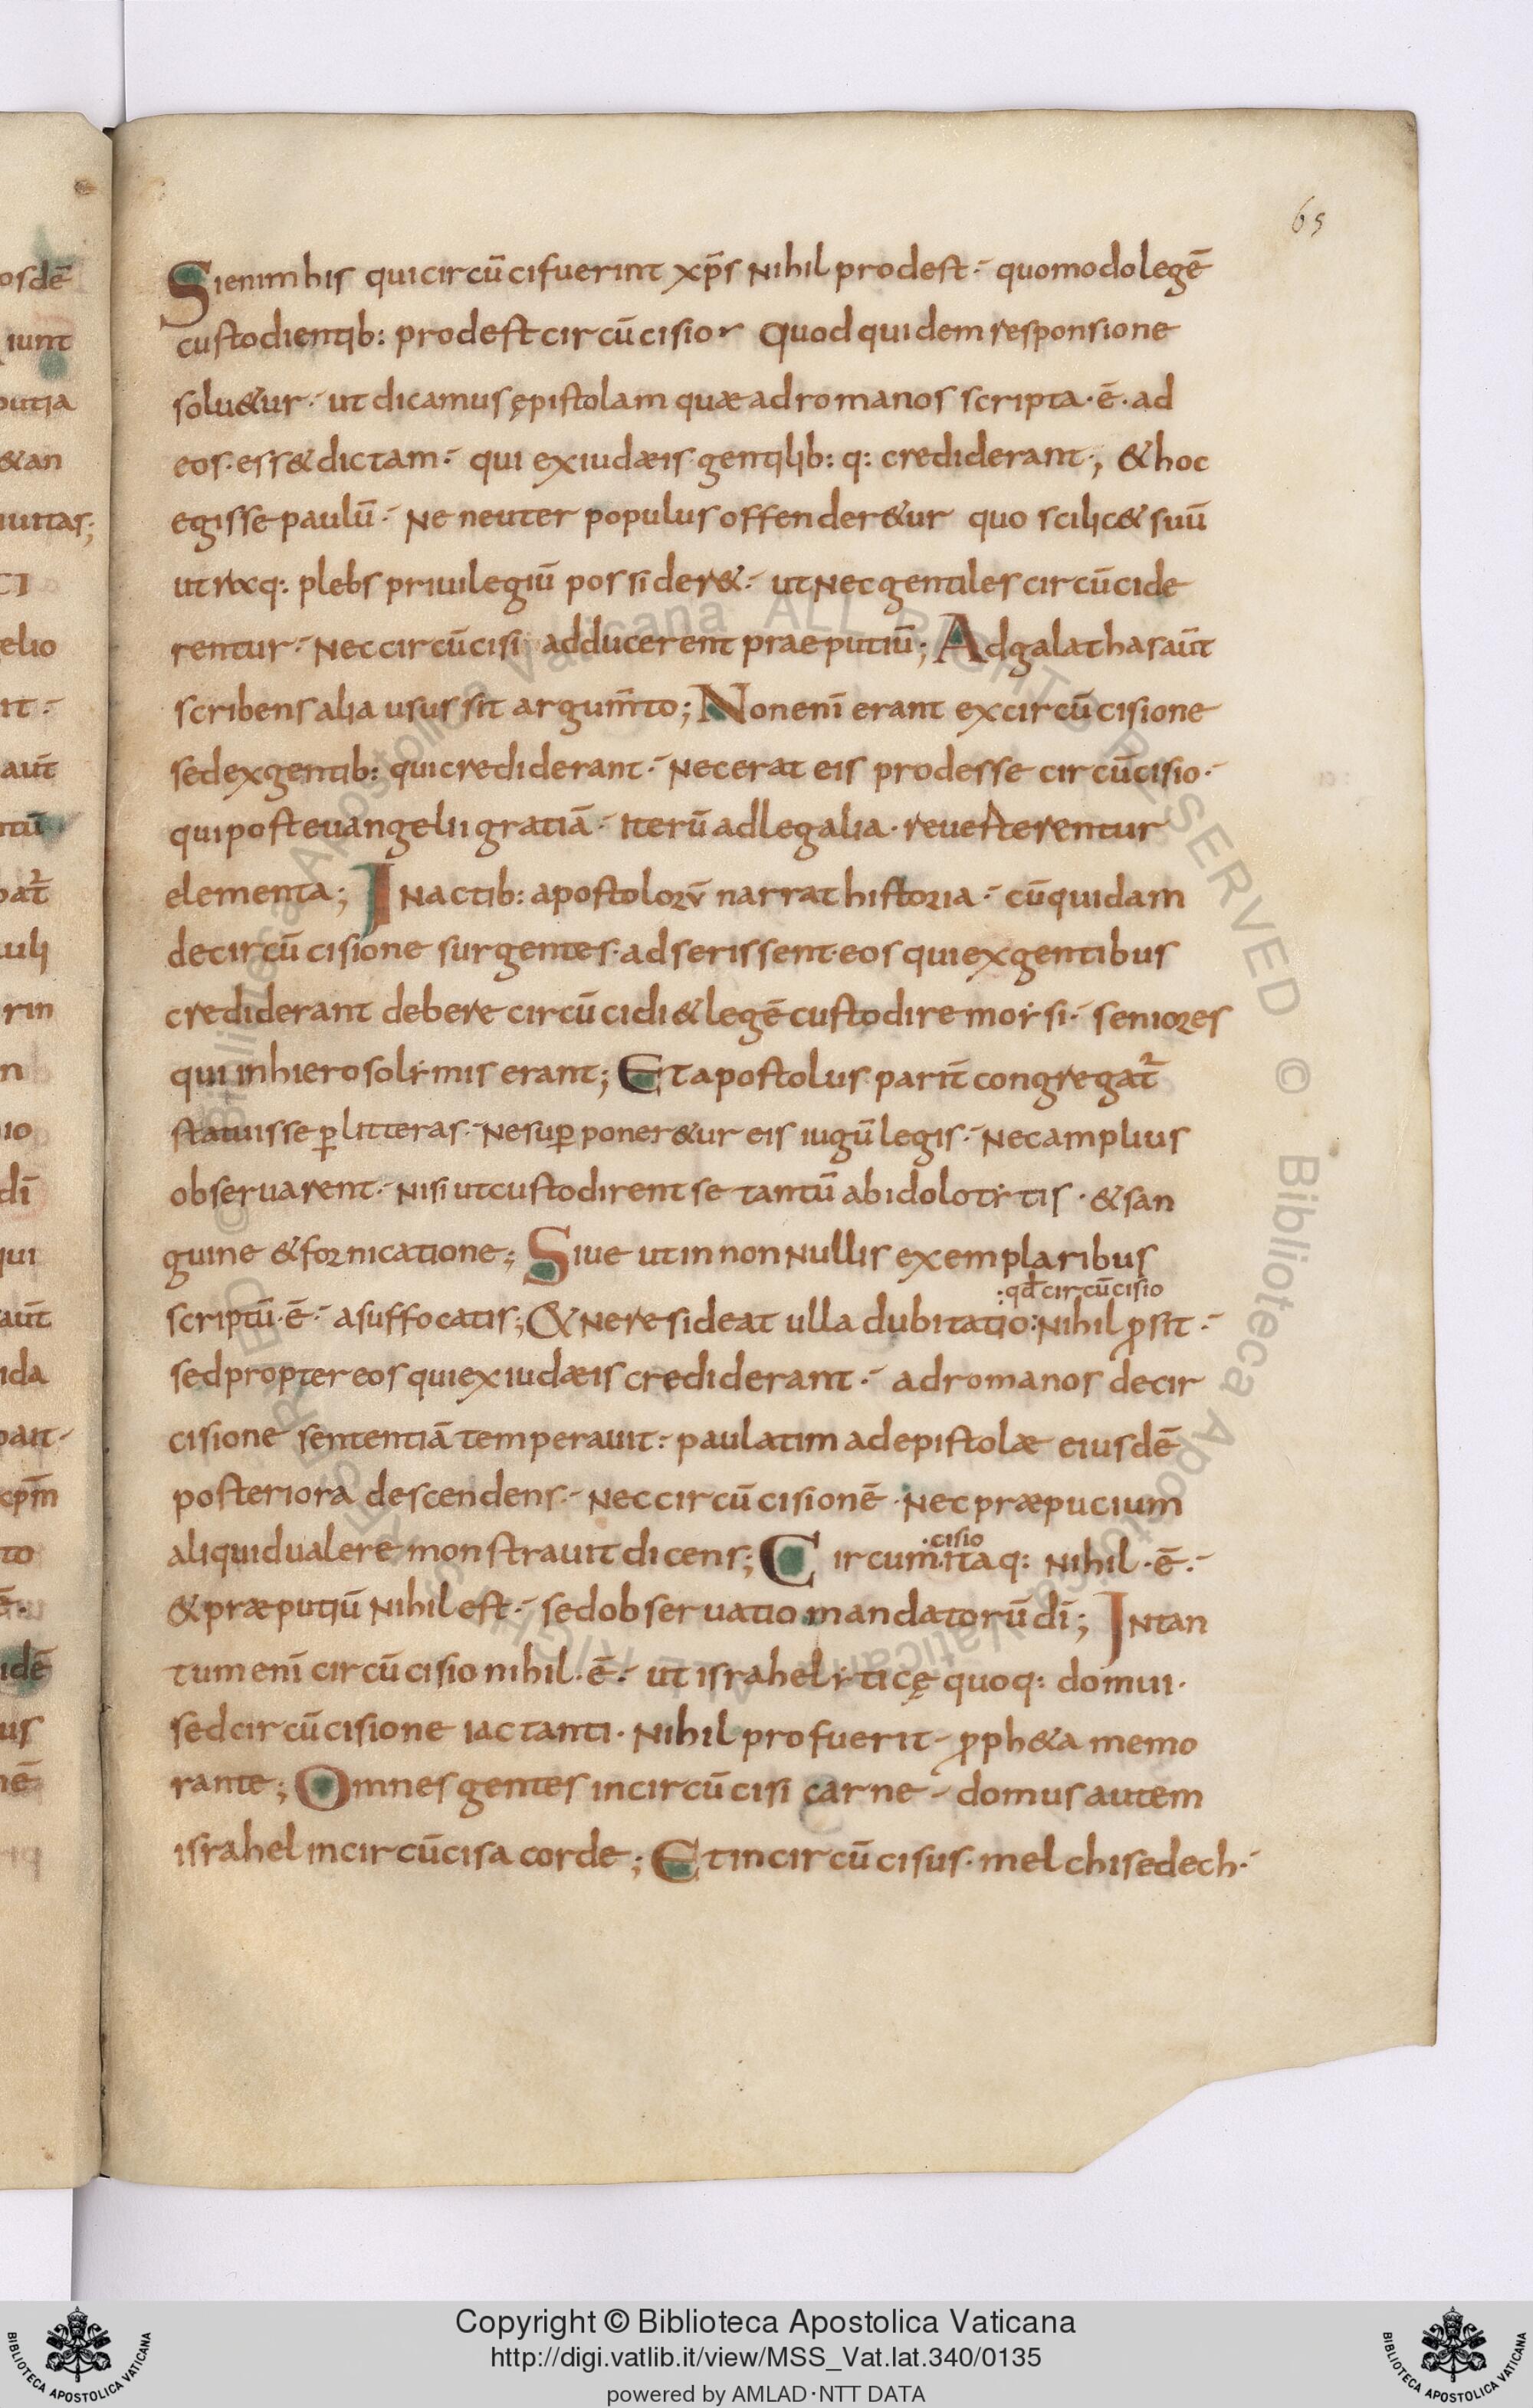 65
Sienim his qui circūcifuerint xp̄s nihil prodest quomodo legē
custodientib: prodest circūcisio Quod quidem responsione
solu&ur ut dicamus ępistolam quæ ad romanos scripta·ē·ad
eos·ess&dictam qui exiudæis gentilib:q: crediderant; &hoc
egisse paulū Ne neuter populus offender&ur quo scilic& suū
utraq: plebs priuilegiū possider& ut Nec gentiles circūcide
rentur Nec circūcisi adducerent praeputiū; Ad galathas aūt
scribens alia usus sit argum̄to; Non enī erant ex circūcisione
sed ex gentib: qui crediderant Nec erat eis prodesse circūcisio
qui post euangelii gratiā iterū ad legalia·reuerterentur
elementa; IN actib: apostolorū narrat historia cū quidam
de circūcisione surgentes·adserissent·eos qui ex gentibus
crediderant debere circūcidi & legē custodire moysi seniores
qui in hierosolymis erant; Et apostolus parit̄ congregat̄
statuisse p litteras Ne sup poner&ur eis iugū legis Nec amplius
obseruarent Nisi ut custodirent se tantū ab idolotytis·&san
guine & fornicatione; Siue ut in non Nullis exemplaribus
scriptū·ē· a suffocatis; & Ne resideat ulla dubitatio: Nihil p sit
:qd̄ circūcisio
sed propter eos qui ex iudæis crediderant ad romanos de cir
cisione sententiā temperauit paulatim ad epistolæ eiusdē
posteriora descendens Nec circūcisionē·Nec præpucium
aliquid ualere monstrauit dicens; Circum·itaq: Nihil·ē·
·cisio
& præputiū Nihil est sed obseruatio mandatorū dī; INtan
tum enī circūcisio nihil·ē· ut israhelyticę quoq: domui·
sed circūcisione iactanti·Nihil profuerit pph&a memo
rante; Omnes gentes incircūcisi carne domus autem
israhel incircūcisa corde; Et incircūcisus·melchisedech
osdē
iunt
putia
&an
untas;
CI
gelio
it
aut̄
ntū
pat̄
uli
rin
n
io
dī
qui
aut̄
ida
pait
xpm̄
to
ē·
idē
us
nē
© Biblioteca Apostolica Vaticana ALL RIGHTS RESERVED © Biblioteca Apostolica Vaticana ALL RIGHTS RESERVED
Copyright © Biblioteca Apostolica Vaticana
http://digi.vatlib.it/view/MSS_Vat.lat.340/0135
powered by AMLAD·NTT DATA
BIBLIOTECA APOSTOLICA VATICANA
BIBLIOTECA APOSTOLICA VATICANA